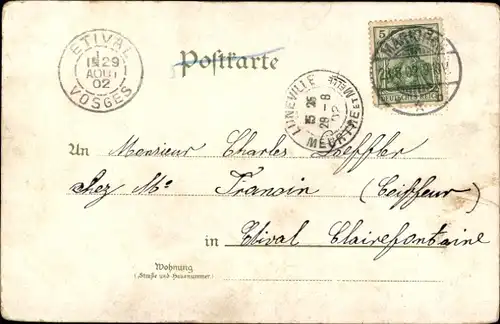 ETIVAL
15 29
AOUT
02
VOSGES
Postkarte
LUNEVILLE
MEURTHE ET MELLE
15 25
29 - 8
02
5
DEUTSCHES REICH
An Monsieur Charles Loeffler
chez Mr Franoin (Coiffeur)
in Etival Clairefontaine
Wohnung
(Straße und Hausnummer)